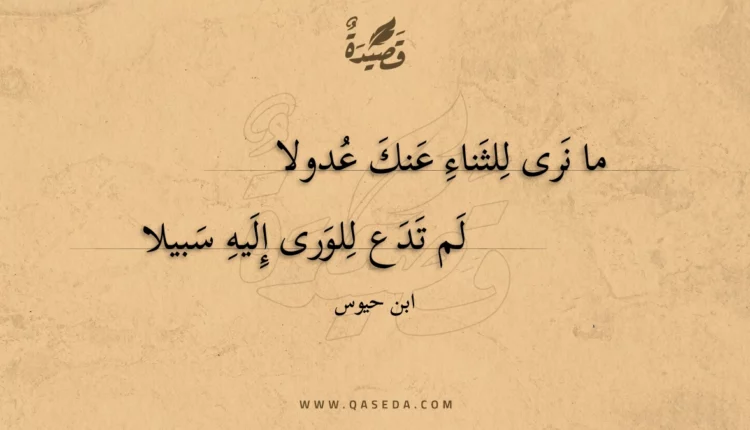 قَصِيدَةٌ
ما نَرى لِلثَناءِ عَنكَ عُدولا
لَم تَدَع لِلوَرى إِلَيهِ سَبيلا
ابن حيوس
WWW.QASEDA.COM